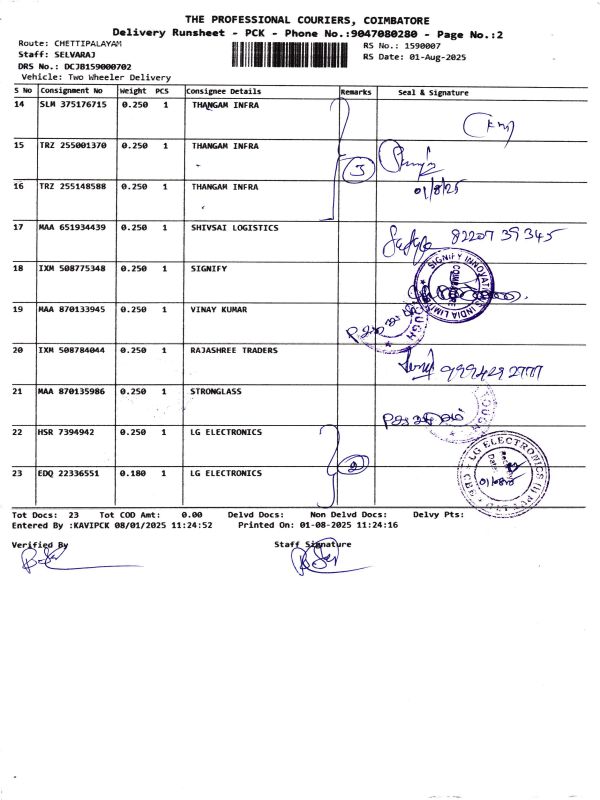 THE PROFESSIONAL COURIERS, COIMBATORE
Delivery Runsheet - PCK - Phone No.:9047080280 - Page No.:2
Route: CHETTIPALAYAM
RS No.: 1590007
Staff: SELVARAJ
RS Date: 01-Aug-2025
DRS No.: DCJB159000702
Vehicle: Two Wheeler Delivery
S No Consignment No Weight PCS Consignee Details Remarks Seal & Signature
14 SLM 375176715 0.250 1 THANGAM INFRA
15 TRZ 255001370 0.250 1 THANGAM INFRA
3
16 TRZ 255148588 0.250 1 THANGAM INFRA
01/8/25
17 MAA 651934439 0.250 1 SHIVSAI LOGISTICS
82207 39345
18 IXM 508775348 0.250 1 SIGNIFY
SIGNIFY INNOVATIONS INDIA LIMITED
19 MAA 870133945 0.250 1 VINAY KUMAR
20 IXM 508784044 0.250 1 RAJASHREE TRADERS
21 MAA 870135986 0.250 1 STRONGLASS
22 HSR 7394942 0.250 1 LG ELECTRONICS
2
LG ELECTRONICS
23 EDQ 22336551 0.180 1 LG ELECTRONICS
Tot Docs: 23 Tot COD Amt: 0.00 Delvd Docs: Non Delvd Docs: Delvy Pts:
Entered By :KAVIPCK 08/01/2025 11:24:52 Printed On: 01-08-2025 11:24:16
Verified By Staff Signature